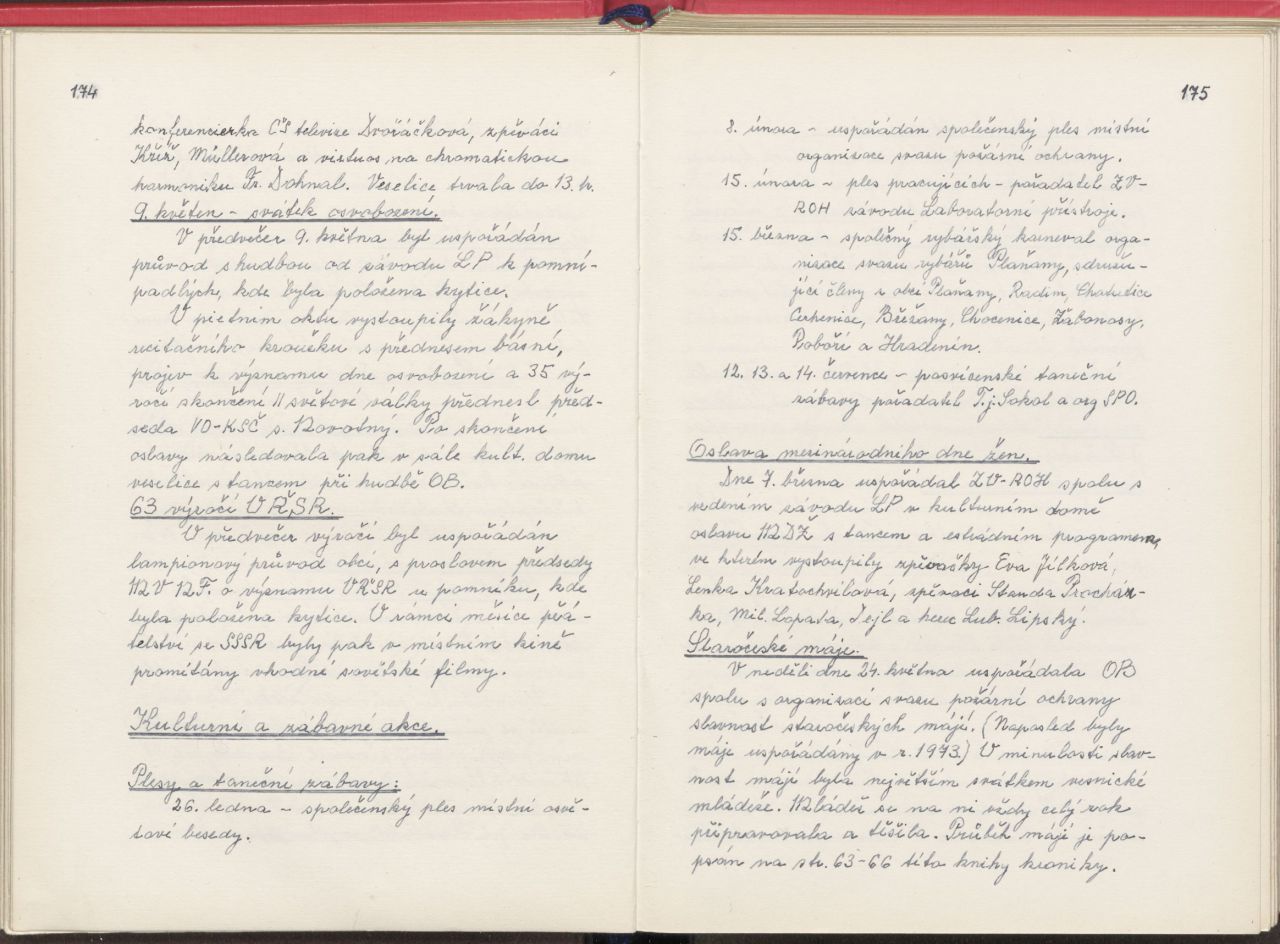 174
konferencierka ČS televize Dvořáčková, zpěváci
Kříž, Müllerová a virtuos na chromatickou
harmoniku Fr. Dohnal. Veselice trvala do 13. h.
9. květen - svátek osvobození.
V předvečer 9. května byl uspořádán
průvod s hudbou od závodu LP k pomní-
padlých, kde byla položena kytice.
V pietním aktu vystoupily žákyně
recitačního kroužku s přednesem básní,
projev k významu dne osvobození a 35 vý-
ročí skončení II světové války přednesl před-
seda VO-KSČ s. Novotný. Po skončení
oslavy následovala pak v sále kult. domu
veselice s tancem při hudbě OB.
63 výročí VŘSR.
V předvečer výročí byl uspořádán
lampionový průvod obcí, s proslovem předsedy
MV NF. o významu VŘSR u pomníku, kde
byla položena kytice. V rámci měsíce přá-
telství se SSSR byly pak v místním kině
promítány vhodné sovětské filmy.
Kulturní a zábavné akce.
Plesy a taneční zábavy:
26. ledna - společenský ples místní osvě-
tové besedy.
175
8. února - uspořádán společenský ples místní
organizace svazu požární ochrany.
15. února - ples pracujících - pořadatel ZV-
ROH závodu Laboratorní přístroje.
15. března - společný rybářský karneval orga-
nizace svazu rybářů Plaňany, sdružu-
jící členy z obcí Plaňany, Radim, Chotutice
Cerhenice, Břežany, Chocenice, Žabonosy,
Poboří a Hradenín.
12. 13. a 14. července - posvícenské taneční
zábavy pořadatel T.j. Sokol a org SPO.
Oslava mezinárodního dne žen.
Dne 7. března uspořádal ZV-ROH spolu s
vedením závodu LP v kulturním domě
oslavu MDŽ s tancem a estrádním programem,
ve kterém vystoupily zpěvačky Eva Jílková,
Lenka Kratochvílová, zpěváci Standa Procház-
ka, Mil. Lopata, Tejl a herec Lub. Lipský.
Staročeské máje.
V neděli dne 24. května uspořádala OB
spolu s organizací svazu požární ochrany
slavnost staročeských májí. (Naposled byly
máje uspořádány v r. 1973.) V minulosti slav-
nost májí byla největším svátkem vesnické
mládeže. Mládež se na ni vždy celý rok
připravovala a těšila. Průběh májí je po-
psán na str. 63-66 této knihy kroniky.